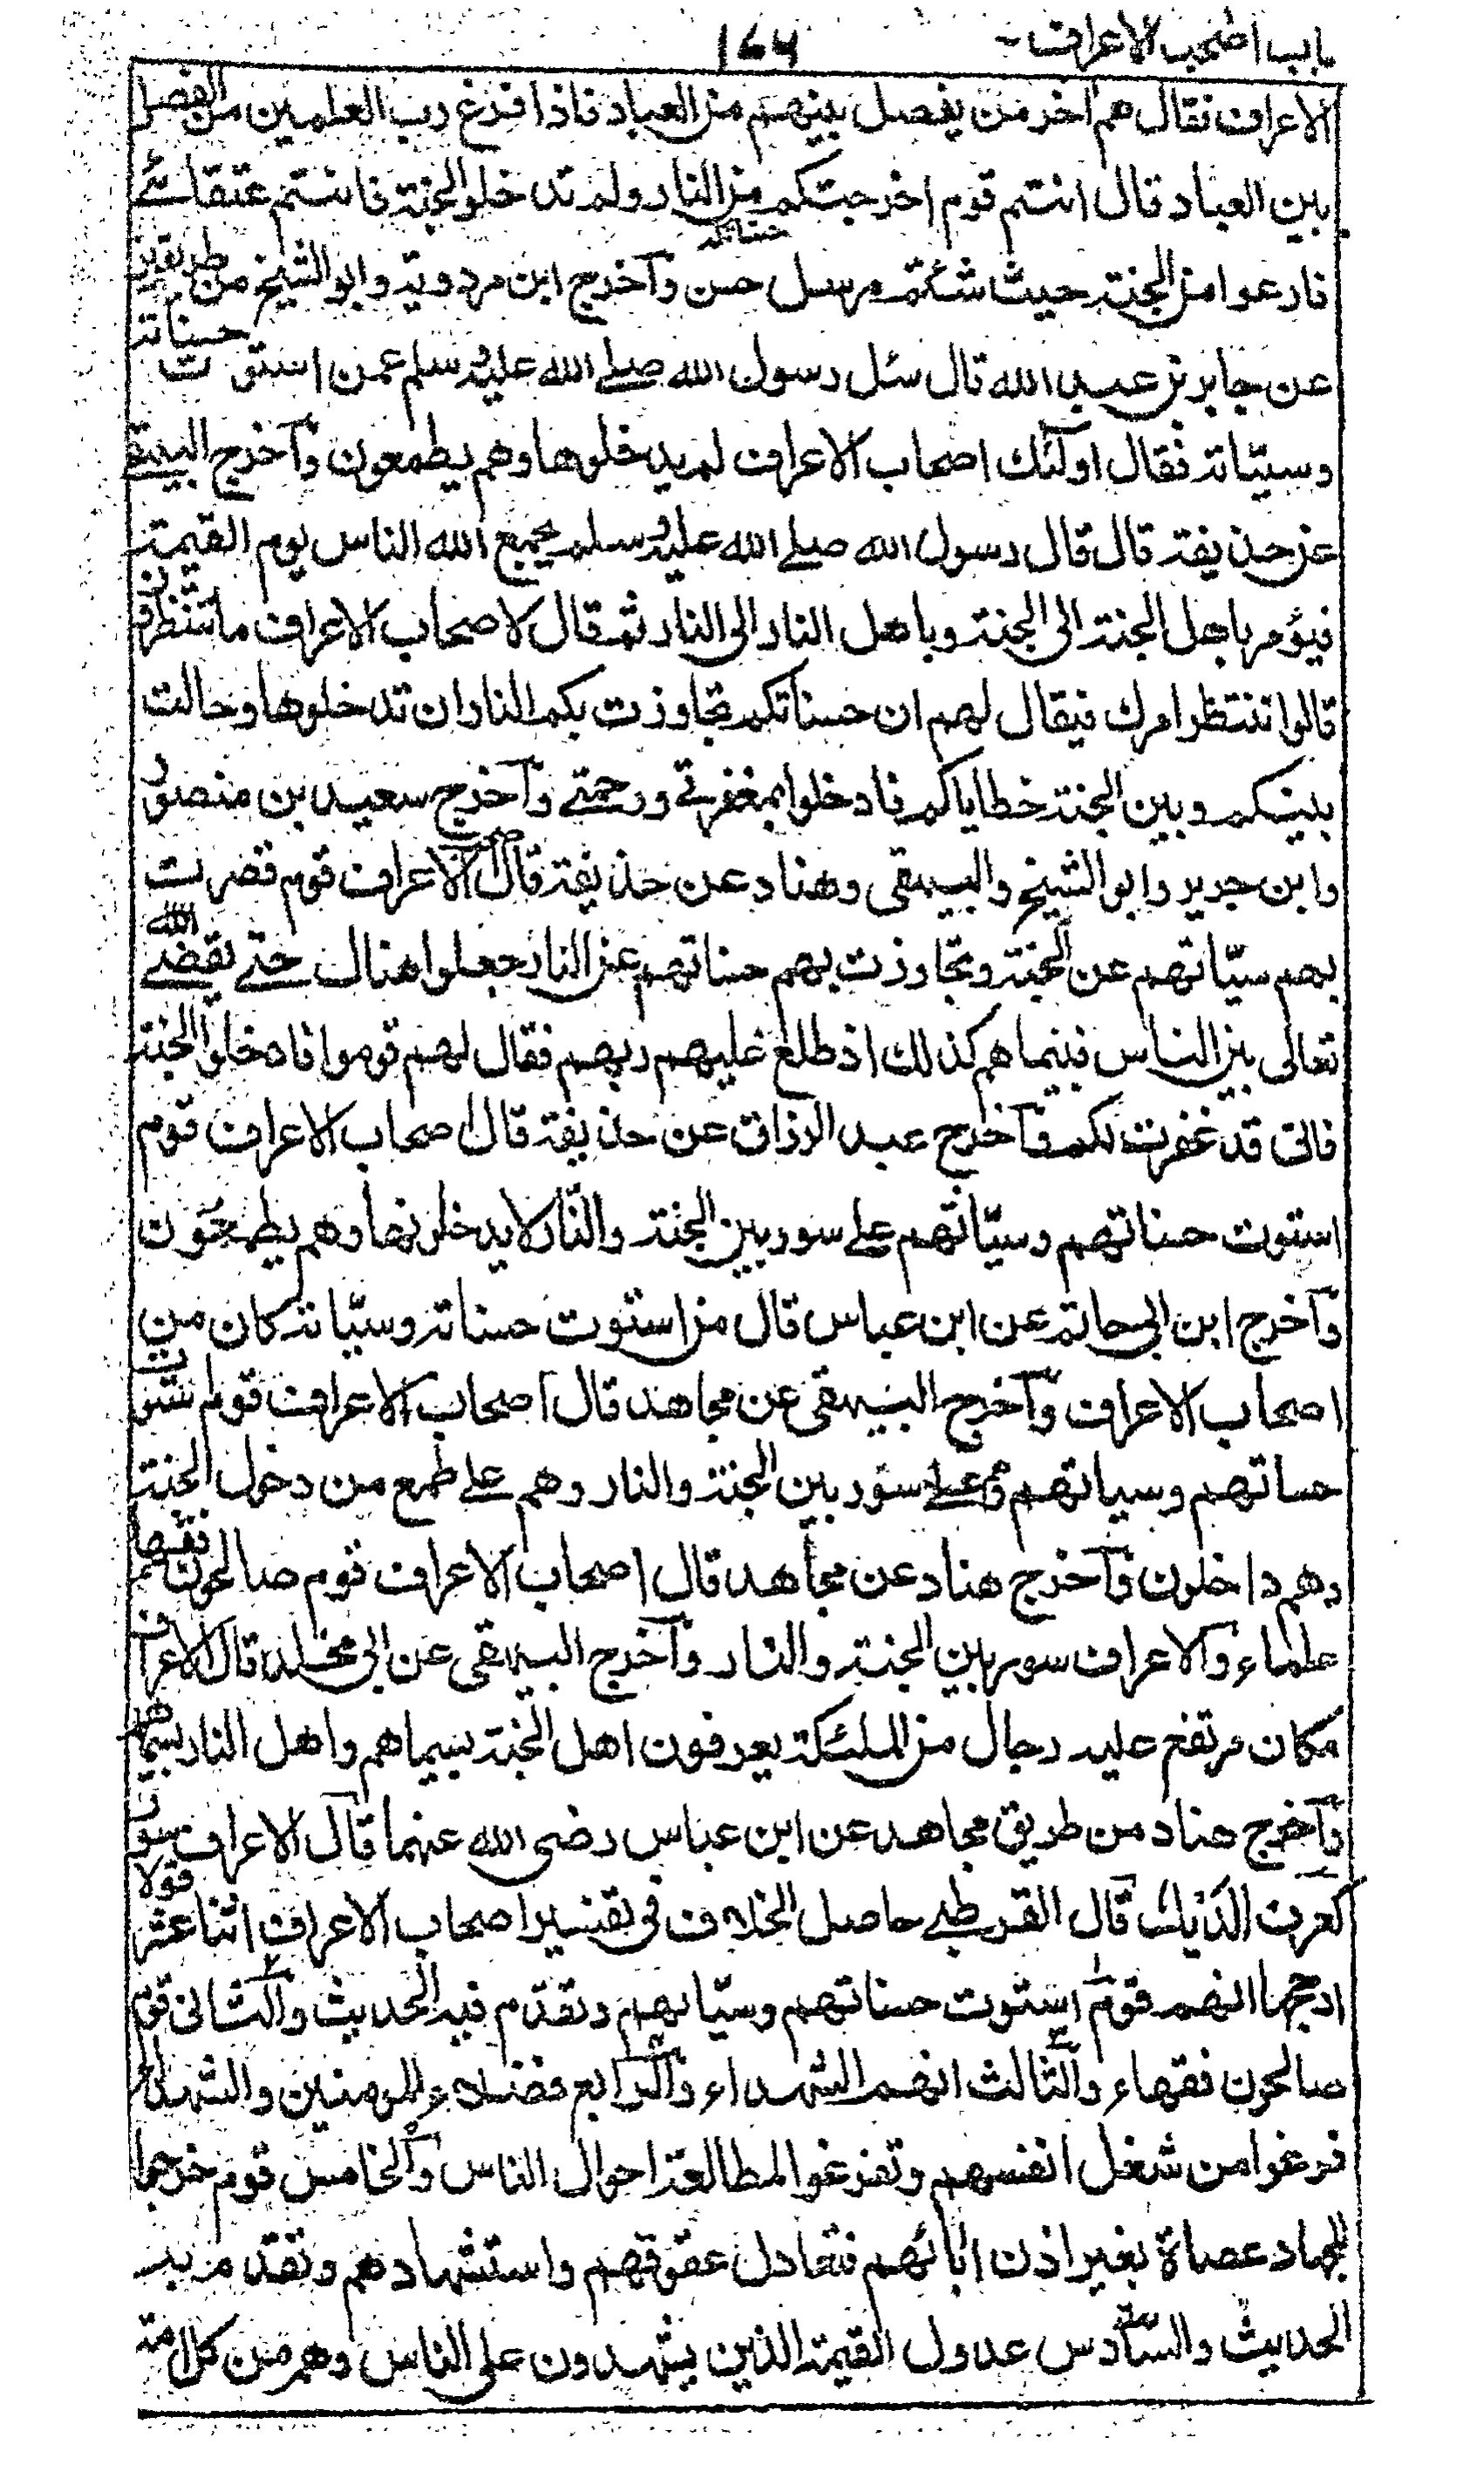 باب اصحب الاعراف
164
الاعراف فقال هم اخر من يفصل بينهم من العباد فاذا فرغ رب العلمين من الفصل
بين العباد قال انتم قوم اخرجتكم حسناتكم من النار ولم تدخلوا الجنة فانتم عتقائے
فارعوا من الجنة حيث شئتم مرسل حسن وآخرج ابن مردوية وابو الشيخ من طريقين
عن جابر بن عبد الله قال سئل رسول الله صلے الله عليه وسلم عمن استوت حسناته
وسيّاته فقال اولئك اصحاب الاعراف لم يدخلوها وهم يطمعون وآخرج البيهقے
عن حذيفة قال قال رسول الله صلے الله عليه وسلم يجمع الله الناس يوم القيمة
فيؤمر باهل الجنة الى الجنة وباهل النار الى النار ثم قال لاصحاب الاعراف ما تنتظرون
قالوا ننتظر امرك فيقال لهم ان حسناتكم تجاوزت بكم النار ان تدخلوها وحالت
بينكم وبين الجنة خطاياكم فادخلوا بمغفرتے ورحمتے وآخرج سعيد بن منصور
وابن جرير وابو الشيخ والبيهقى وهناد عن حذيفة قال اصحب الاعراف قوم قصرت
بهم سيّاتهم عن الجنة وتجاوزت بهم حسناتهم عن النار جعلوا هناك حتے يقضے الله
تعالى بين الناس فبينما هم كذلك اذ طلع عليهم ربهم فقال لهم قوموا فادخلوا الجنة
فانى قد غفرت لكم وآخرج عبد الرزاق عن حذيفة قال اصحاب الاعراف قوم
استوت حسناتهم وسيّاتهم علے سور بين الجنة والنّار لا يدخلونها وهم يطمعون
وآخرج ابن ابى حاتم عن ابن عباس قال من استوت حسناته وسيّاته كان من
اصحاب الاعراف وآخرج البيهقى عن مجاهد قال اصحاب الاعراف قوم استوت
حسناتهم وسياتهم وهم علے سور بين الجنة والنار وهم علے طمع من دخول الجنة
وهم داخلون وآخرج هناد عن مجاهد قال اصحاب الاعراف قوم صالحون فقهاء
علماء والاعراف سور بين الجنة والنار وآخرج البيهقى عن ابى مجلز قال الاعراف
مكان مرتفع عليه رجال من الملئكة يعرفون اهل الجنة بسيماهم واهل النار بسيماهم
وآخرج هناد من طريق مجاهد عن ابن عباس رضى الله عنهما قال الاعراف سور
كعرف الديك قال القرطبے حاصل الخلاف فى تفسير اصحاب الاعراف اثنا عشر قولا
ارجحها انهم قوم استوت حسناتهم وسيّاتهم وتقدم فيه الحديث والثانى قوم
صالحون فقهاء والثالث انهم الشهداء والرابع فضلاء المومنين والشهداء
فرغوا من شغل انفسهم وتفرغوا لمطالعة احوال الناس والخامس قوم خرجوا
للجهاد عصاة بغير اذن ابائهم فتعادل عقوقهم واستشهادهم وتقدم به
الحديث والسّادس عدول القيمة الذين يشهدون على الناس وهم من كل امة